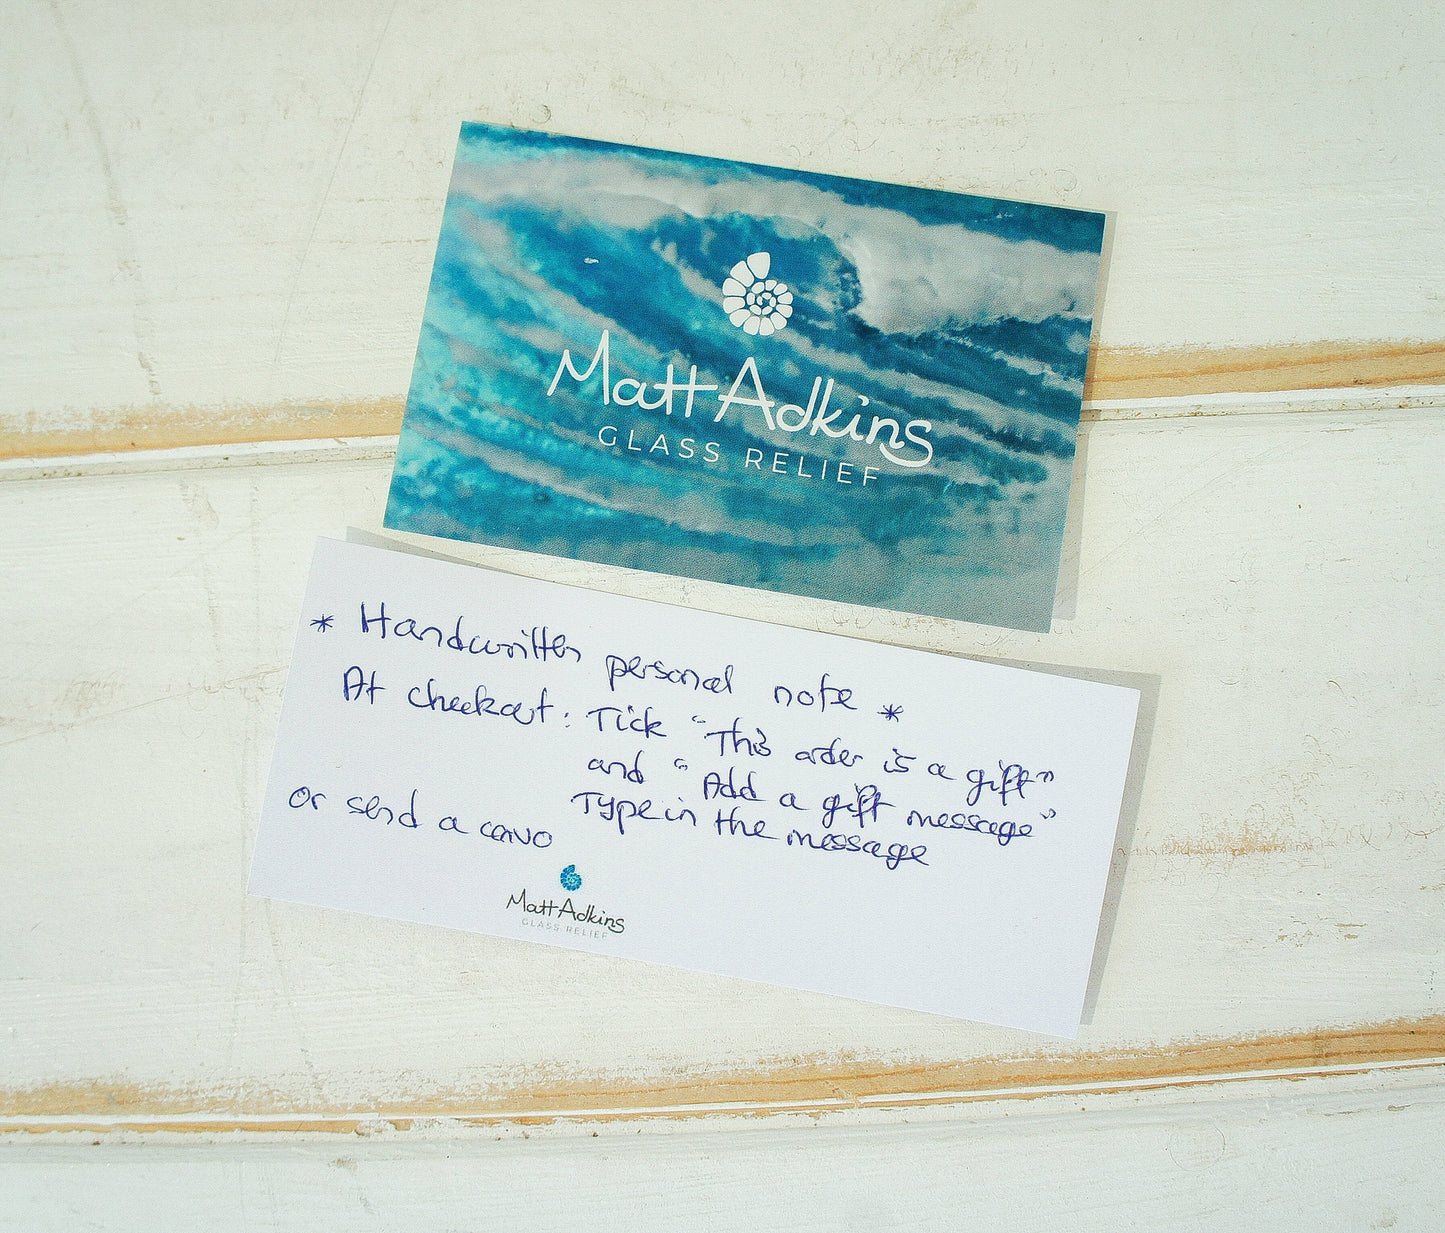 Matt Adkins
GLASS RELIEF
* Handwritten personal note *
At checkout: Tick "This order is a gift"
and "Add a gift message"
Type in the message
or send a convo
Matt Adkins
GLASS RELIEF